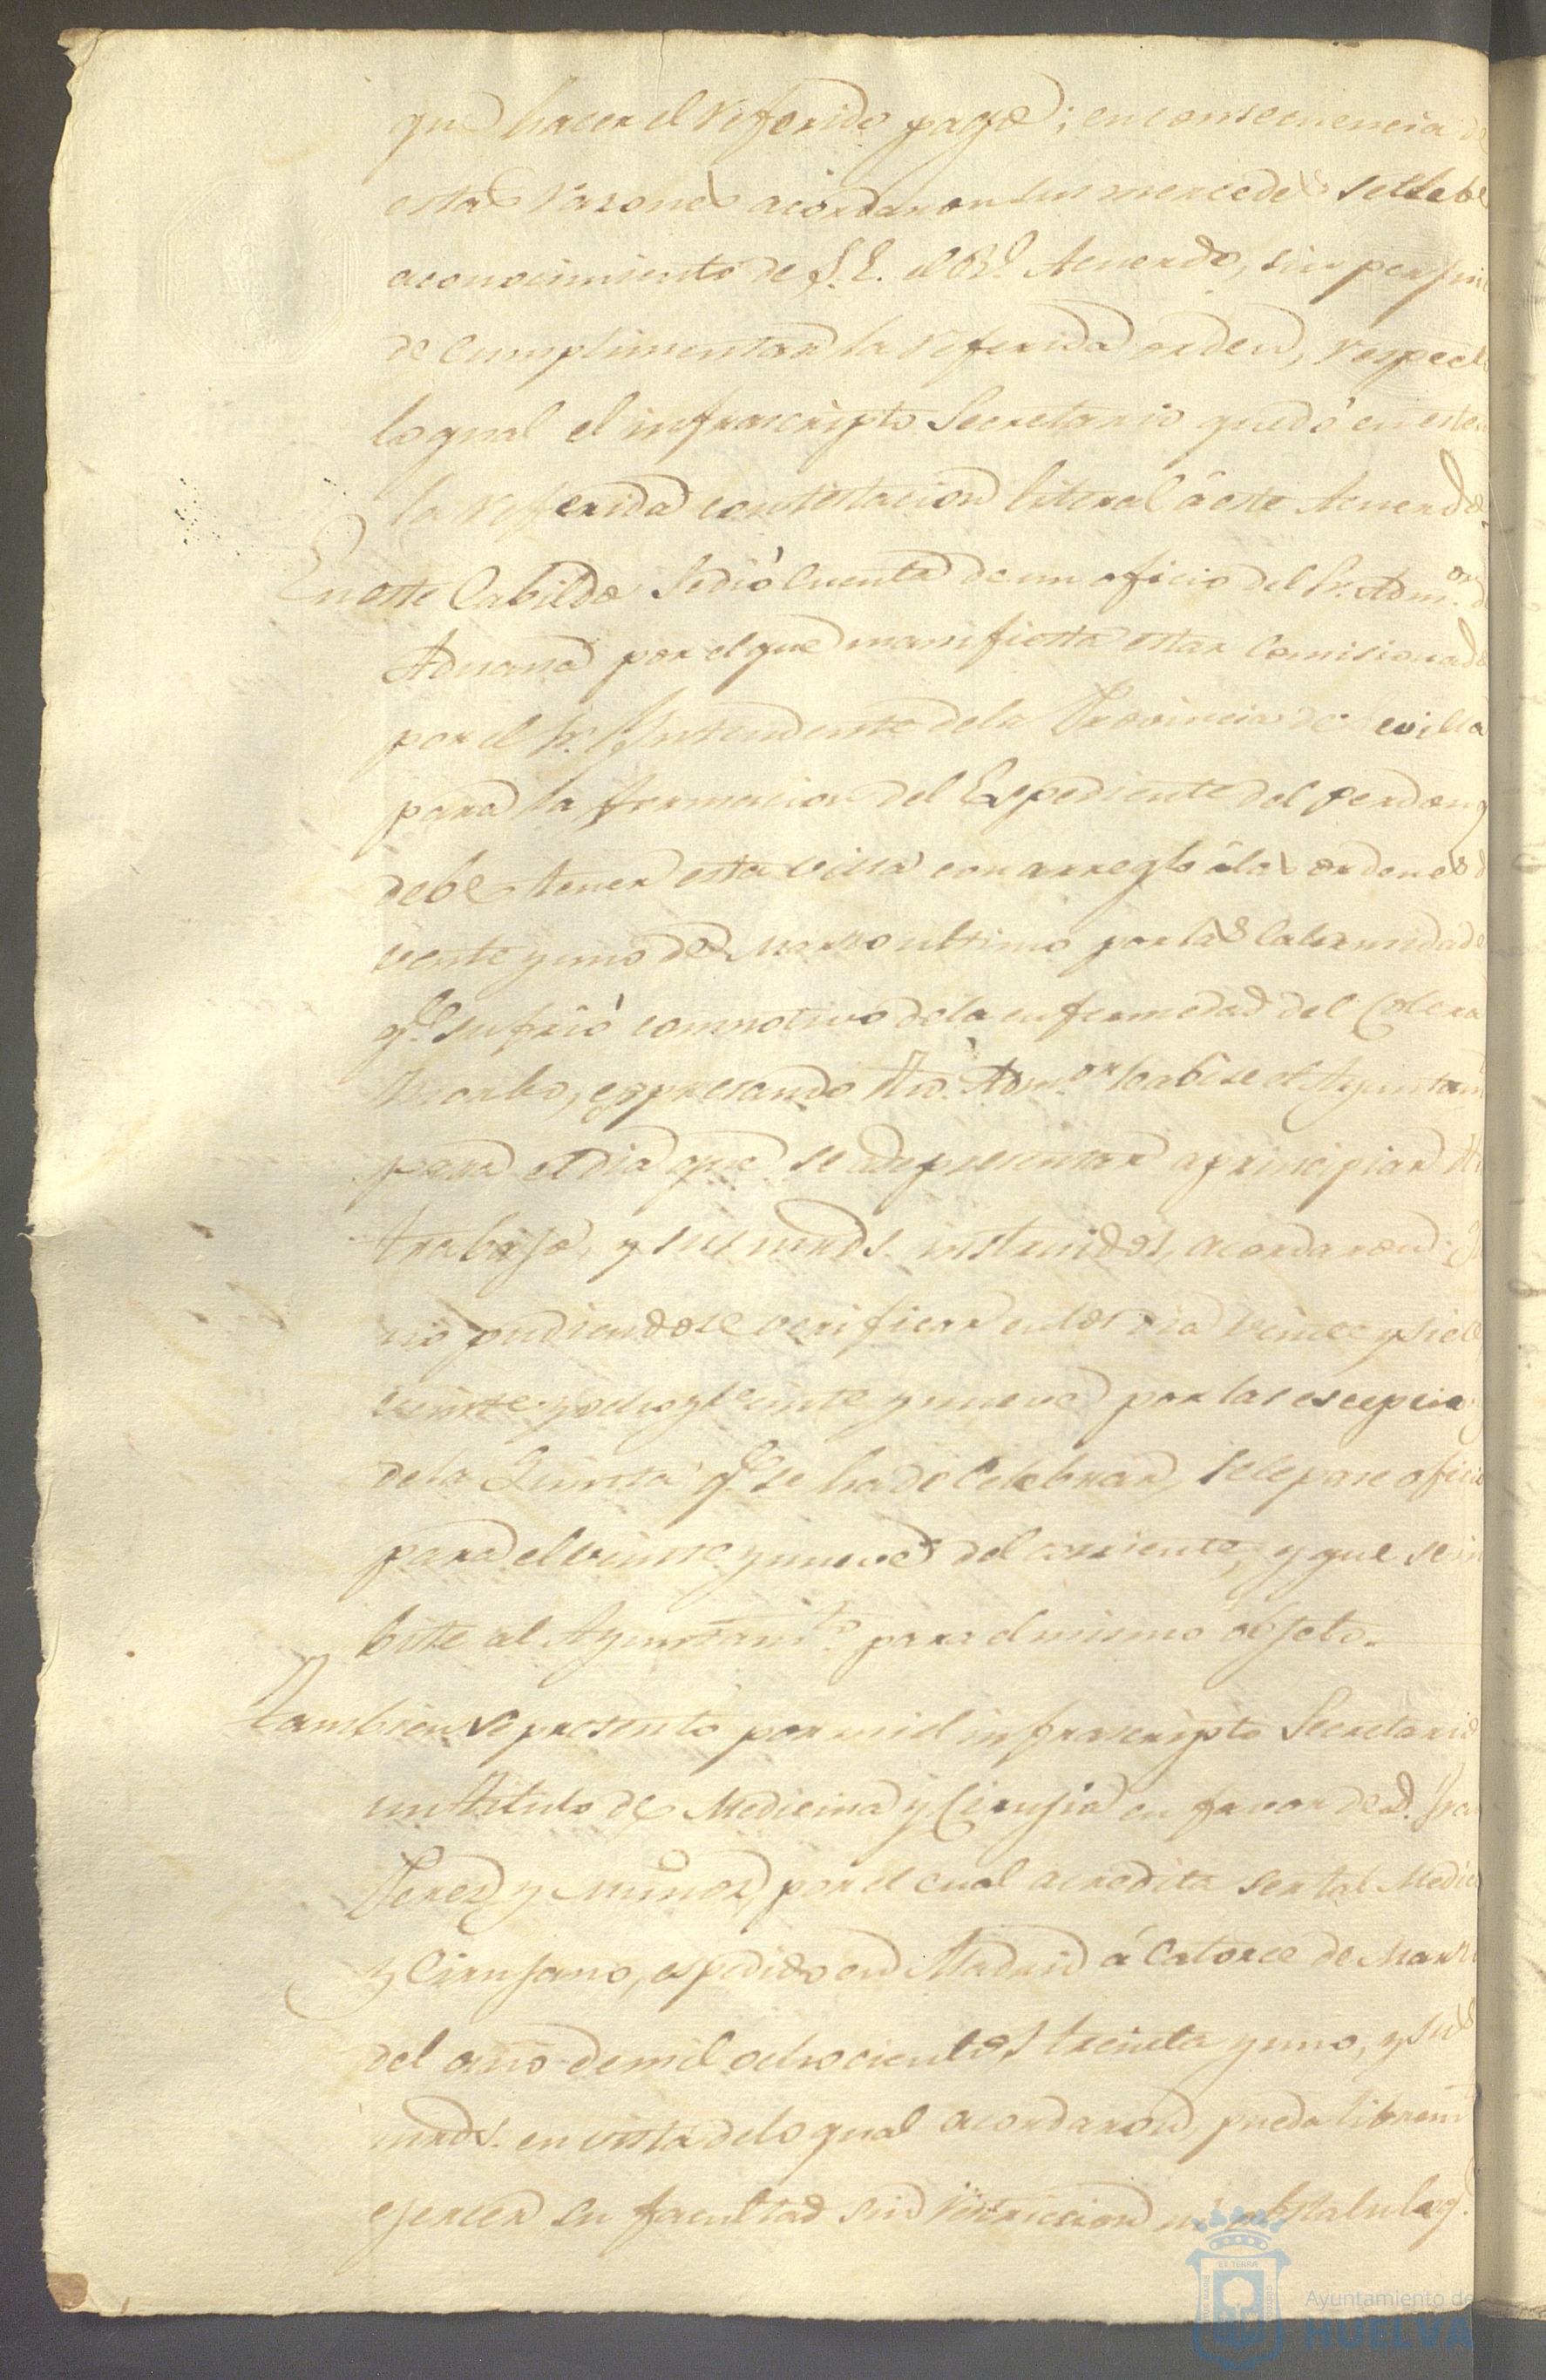 que hacer el referido pago; en consecuencia de
estas razones acordaron sus mercedes se elebe
a conocimiento de S. E. el Rl. Acuerdo, sin perjui
de cumplimentar la referida orden, respect
lo qual el infrascripto Secretario quedó en
la referida contestacion literal á este Acuerdo.
En este Cabildo se dió cuenta de un oficio del Sr. Admor. de
Aduana por el que manifiesta estar comisionado
por el Sr. Intendente de la Provincia de Sevilla
para la formacion del Espediente del perdon q
debe tener esta villa con arreglo á las ordenes d
veinte y uno de Marzo ultimo por las calamidade
qe. sufrió con motivo de la enfermedad del Colera
Morbo, espresando dho. Admor. habise el Ayuntam
para el dia que se ade presentar a principiar dho
trabajo, y sus mrds. instruidos, acordaron: Q
no pudiendose verificar en los dia veinte y siete
veinte y ocho y veinte y nueve por las escepcio
de la Quinta qe. se ha de Celebrar, se le pase oficio
para el veinte y nueve del corriente, y que se in
bite al Ayuntamto. para el mismo objeto.
Tambien se presentó por mi el infrascripto Secretario
un titulo de Medicina y Cirujia en favor de D. Fran
Perez y Muñoz, por el cual acredita ser tal Medico
y Cirujano, espedido en Madrid á Catorce de Marzo
del año de mil ochocientos treinta y uno, y sus
mrds. en vista de lo qual acordaron, pueda libremt
ejercer su facultad sin restriccion
Ayuntamiento de
HUELVA